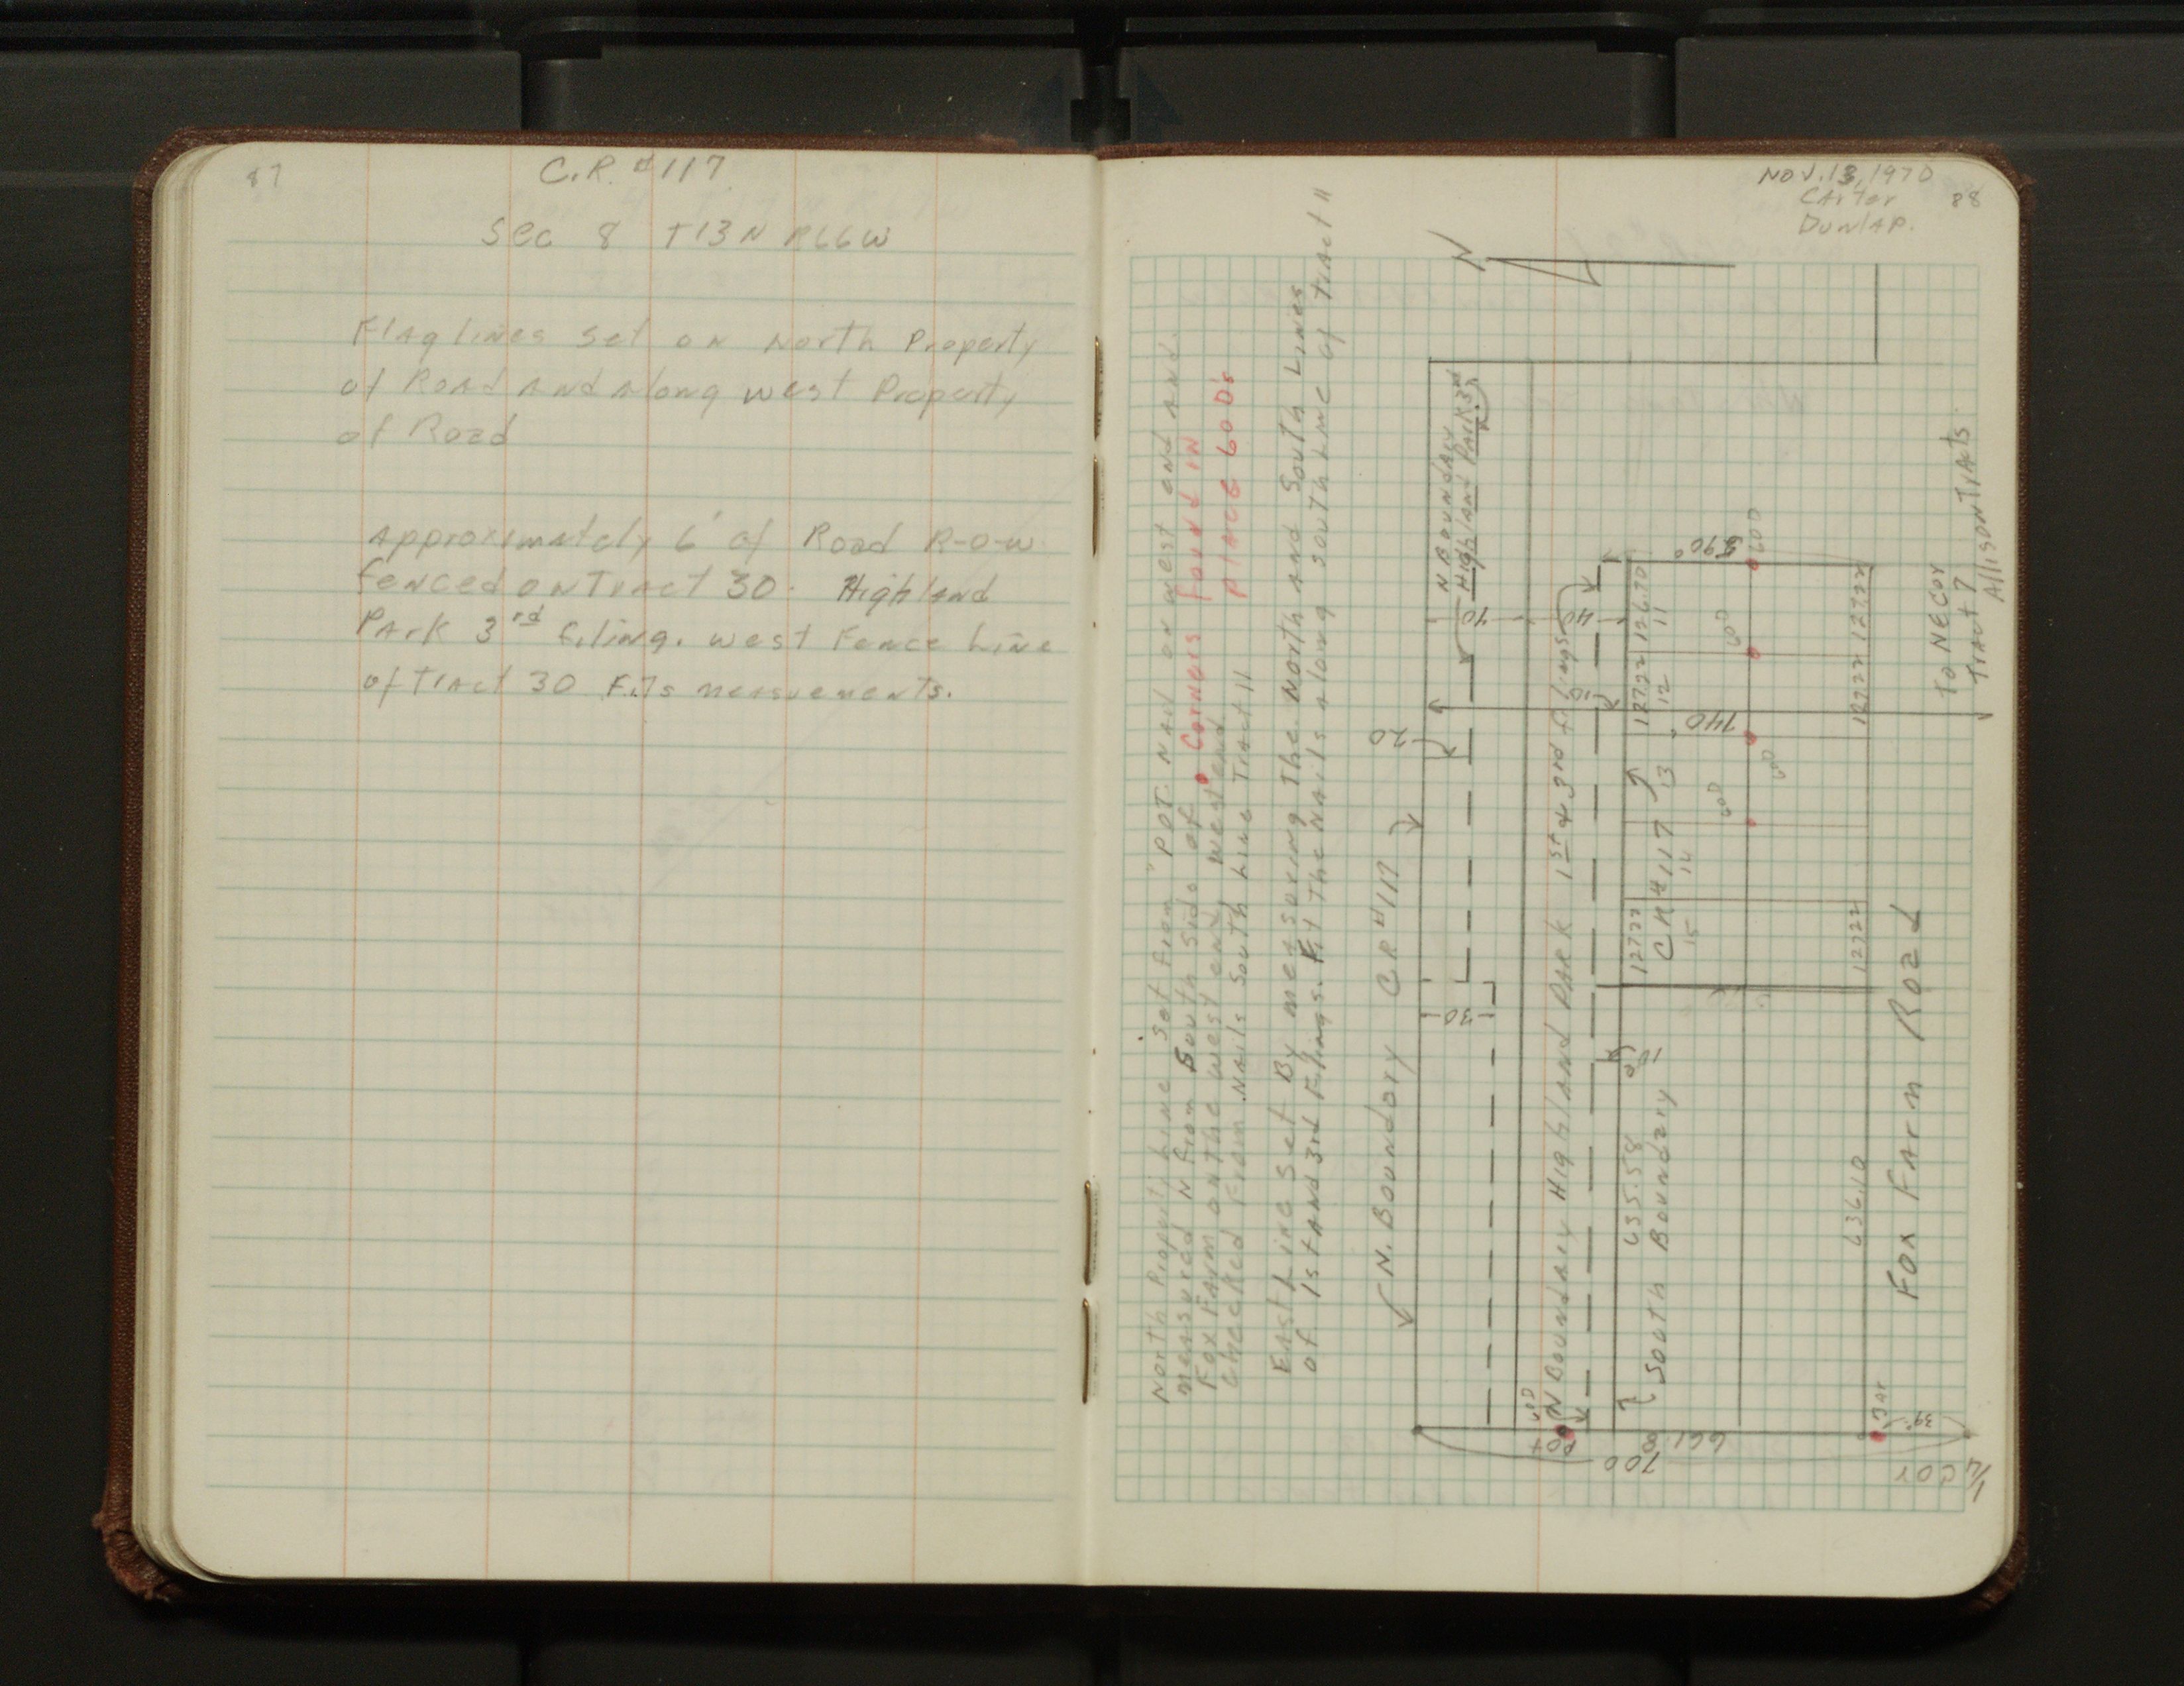 87
C.R. #117
Sec 8 T13N R66W
Flag lines set on North Property
of Road and along west Property
of Road
Approximately 6' of Road R-O-W
fenced on Tract 30. Highland
Park 3rd filing. west Fence Line
of Tract 30 Fits measuements.
Nov. 13, 1970
Carter
Dunlap.
88
North Property Line set from "POT. Nail on west end and.
measured N from South Side of
Fox Farm on the west end, West end
Checked from Nails South Line Tract 11
Corners found in
place 60D's
East Line Set By measoring the North and South Lines
of 1st and 3rd Filings. Fit The Nails along south Line of Tract 11
N
N. Boundory CR #117
20
30
N Boundary
Highland Park 3rd
40
40
N Boundary Highland Park 1st & 3rd Filings
South Boundary CR #117
635.58
127.22
127.22
126.70
15
14
13
12
11
140
590°
60D
60D
60D
60D
636.10
127.22
127.22
127.22
127.22
Fox Farm Road
To NE Cor
Tract 7
Allison Tracts
POT
700
661
Bar
39
1/4 Cor